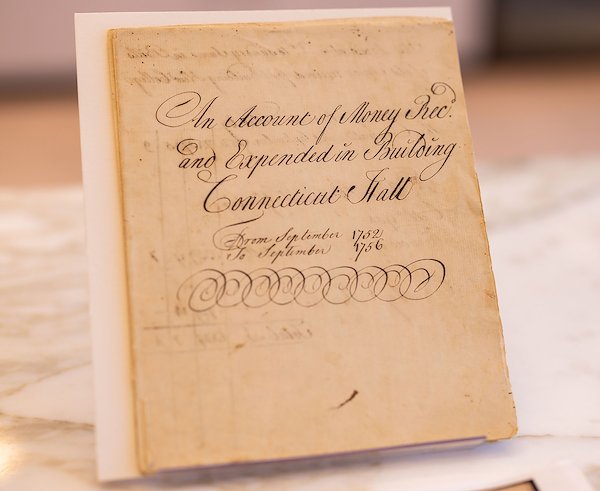 An Account of Money Rec.d
and Expended in Building
Connecticut Hall
From September 1752
To September 1756